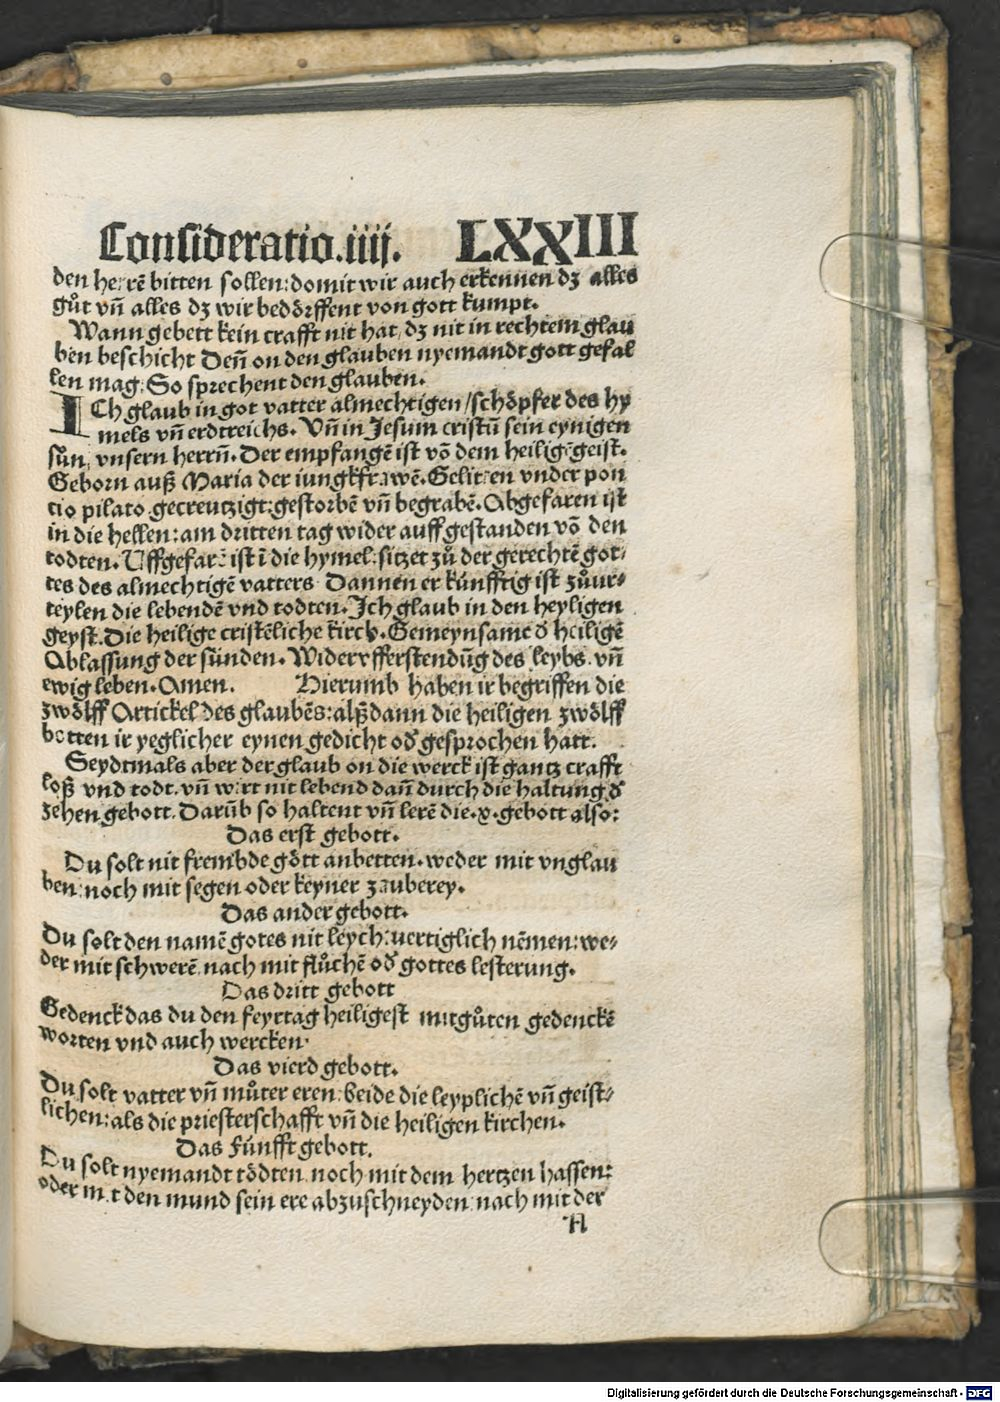 Consideratio.iiij. LXXIII
den herrē bitten sollen: domit wir auch erkennen dz alles
gůt vñ alles dz wir bedörffent von gott kumpt.
Wann gebett kein crafft nit hat/ dz nit in rechtem glau
ben beschicht Deñ on den glauben nyemandt gott gefal
len mag: So sprechent den glauben.
ICh glaub in got vatter almechtigen/ schöpfer des hy
mels vñ erdtreichs. Vñ in Jesum cristū sein eynigen
sůn, vnsern herrñ. Der empfangē ist vō dem heiligē geist.
Geborn auß Maria der iungkfrawē. Gelitten vnder pon
tio pilato gecreutzigt: gestorbē vñ begrabē. Abgefaren ist
in die hellen: am dritten tag wider auff gestanden vō den
todten. Uffgefarē ist ī die hymel: sitzet zů der gerechtē got⸗
tes des almechtigē vatters Dannen er kúnfftig ist zůur⸗
teylen die lebendē vnd todten. Jch glaub in den heyligen
geyst. Die heilige cristēliche kirch. Gemeynsame d̕ heiligē
Ablassung der súnden. Widervfferstendūg des leybs. vñ
ewig leben. Amen. Hierumb haben ir begriffen die
zwölff Artickel des glaubēs: alßdann die heiligen zwölff
botten ir yeglicher eynen gedicht od̕ gesprochen hatt.
Seydtmals aber der glaub on die werck ist gantz crafft
loß vnd todt. vñ wirt nit lebend dañ durch die haltung d̕
zehen gebott. Darūb so haltent vñ lerē die.x.gebott also:
Das erst gebott.
Du solt nit frembde gött anbetten. weder mit vnglau
ben: noch mit segen oder keyner zauberey.
Das ander gebott.
Du solt den namē gotes nit leych: uertiglich nēmen: we⸗
der mit schwerē, nach mit flůchē od̕ gottes lesterung.
Das dritt gebott
Gedenck das du den feyrtag heiligest mit gůten gedenckē
worten vnd auch wercken.
Das vierd gebott.
Du solt vatter vñ můter eren: beide die leyplichē vñ geist⸗
lichen: als die priesterschafft vñ die heiligen kirchen.
Das fúnfft gebott.
Du solt nyemandt tödten noch mit dem hertzen hassen:
oder mit den mund sein ere abzuschneyden nach mit der
A
Digitalisierung gefördert durch die Deutsche Forschungsgemeinschaft - DFG